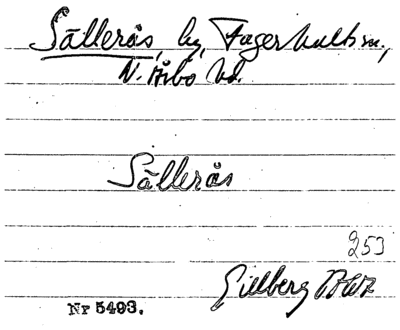 Sällerås, by, Fagerhults sn.,
N. Åsbo hd.
Sällerås
253
Gillberg
Nr 5493.